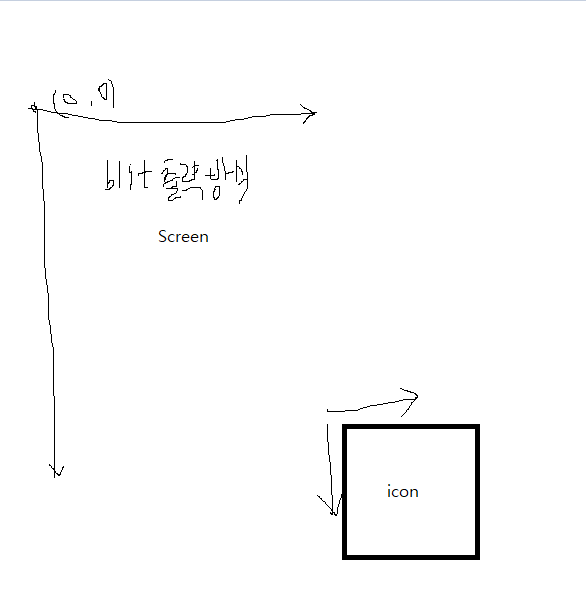 (0,0)
blit 출력방식
Screen
icon